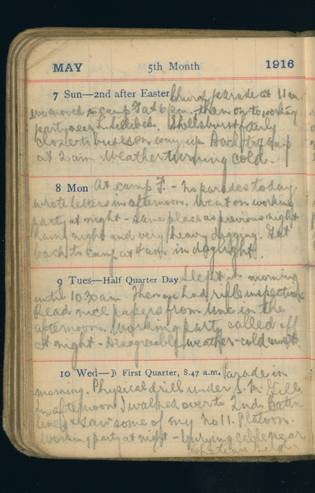 MAY 5th Month 1916
7 Sun—2nd after Easter Church parade at 11 am
we moved to camp F at 6 pm. then on to working
party near Shells burst fairly
close to buses on way up. Back to camp
at 2 am. Weather turning cold.
8 Mon At camp F. - no parades today
wrote letters in afternoon. Went on working
party at night - same place as previous night
night and very heavy digging. Got
back to camp at 4 am. in daylight.
9 Tues—Half Quarter Day Slept in morning
until 10.30 am. Then we had rifle inspection.
Read papers from line in the
afternoon. Working party called off
at night. Disagreeable weather - cold
10 Wed—First Quarter, 8.47 a.m. Parade in
morning. Physical drill under S.M. Wells
In afternoon I walked over to 2nd. Battn
lines & saw some of my No 11. Platoon.
Working party at night - burying cable near